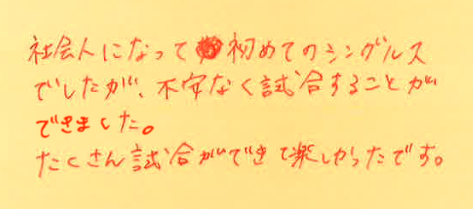 社会人になって初めてのシングルス
でしたが、不安なく試合することが
できました。
たくさん試合ができて楽しかったです。